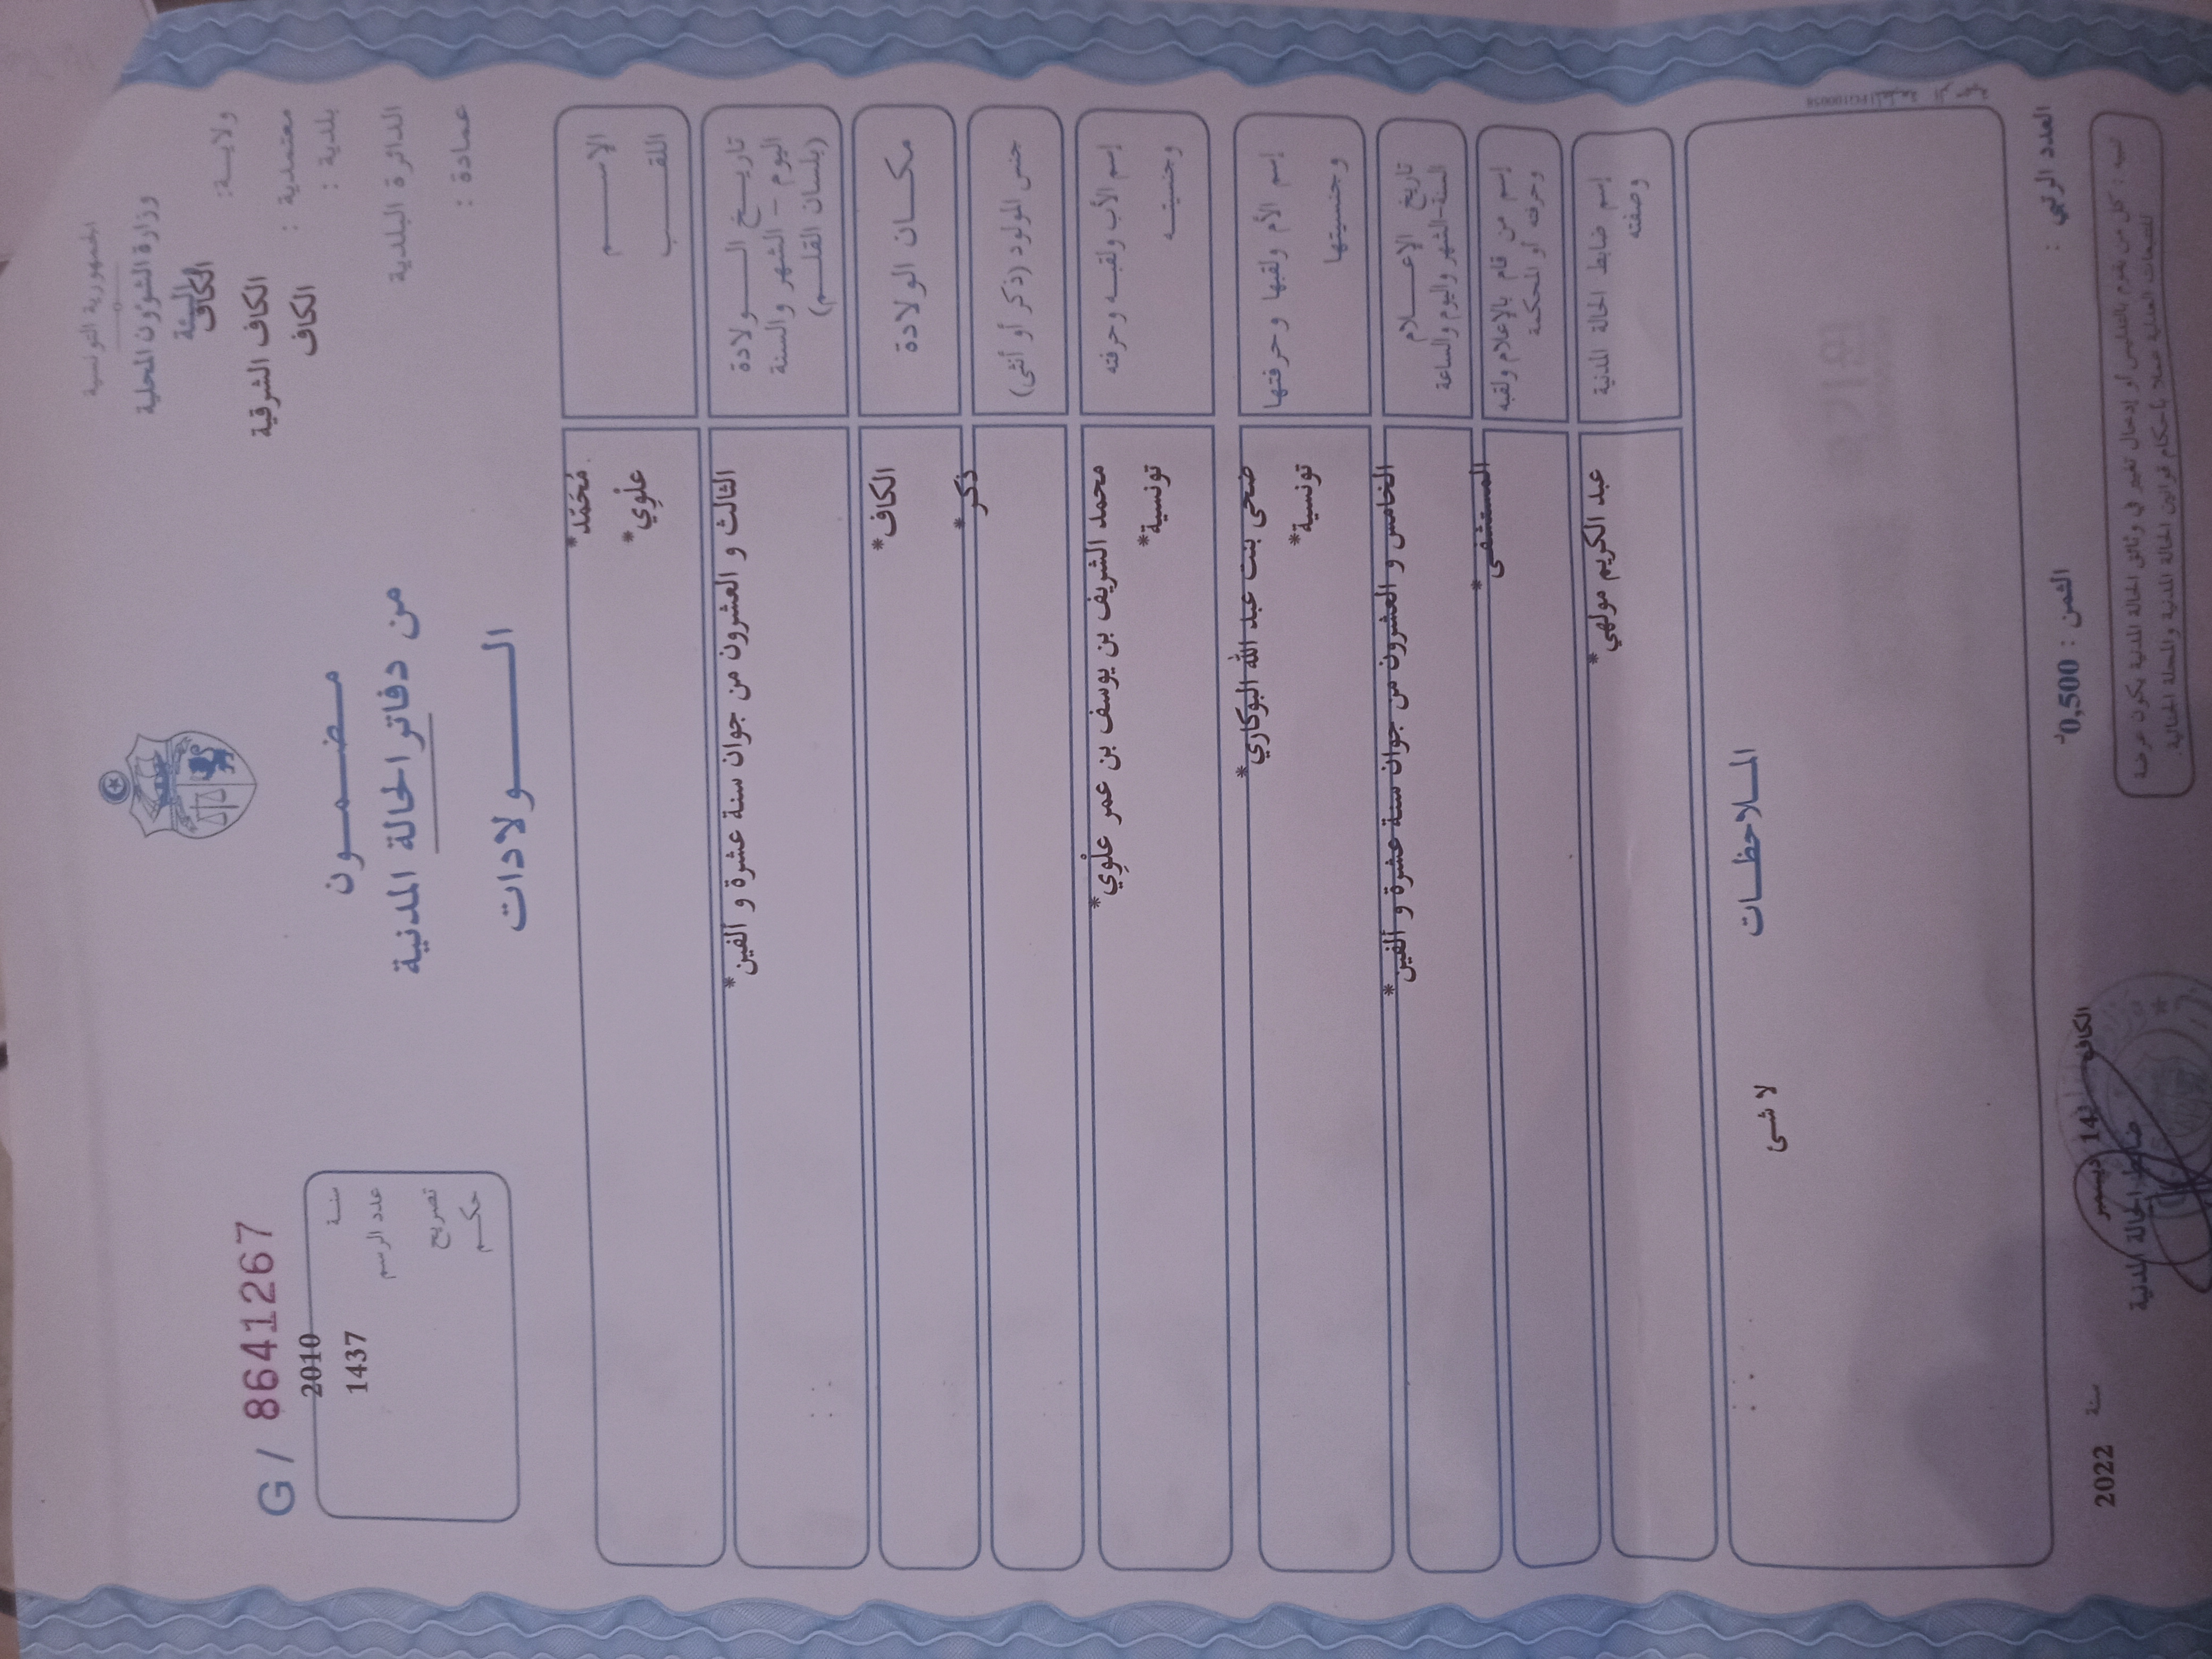 الجمهورية التونسية
وزارة الشؤون المحلية
والبيئة
ولاية: الكاف
معتمدية : الكاف الشرقية
بلدية : الكاف
الدائرة البلدية
عمادة :
G / 8641267
سنة 2010
عدد الرسم 1437
تصريح
حكم
مضمون
من دفاتر الحالة المدنية
الولادات
الإسم مُحَمّد*
اللقب علْوِي*
تاريخ الولادة
اليوم - الشهر والسنة
(بلسان القلم)
الثالث و العشرون من جوان سنة عشرة و ألفين*
مكان الولادة الكاف*
جنس المولود (ذكر أو أنثى) ذكر*
إسم الأب ولقبه وحرفته محمد الشريف بن يوسف بن عمر علْوِي*
وجنسيته تونسية*
إسم الأم ولقبها وحرفتها ضحى بنت عبد الله البوكاري*
وجنسيتها تونسية*
تاريخ الإعلام
السنة-الشهر واليوم والساعة
الخامس و العشرون من جوان سنة عشرة و ألفين*
إسم من قام بالإعلام ولقبه
وحرفته أو المحكمة
المستشفى*
إسم ضابط الحالة المدنية عبد الكريم مولهي*
وصفته
الملاحظات
لا شئ
العدد الرتبي :
الثمن : 0,500د
الكاف 14 ديسمبر سنة 2022
ضابط الحالة المدنية
تنبيه : كل من يقوم بالتدليس أو إدخال تغيير في وثائق الحالة المدنية يكون عرضة
للتتبعات العدلية عملا بأحكام قوانين الحالة المدنية والمجلة الجنائية.